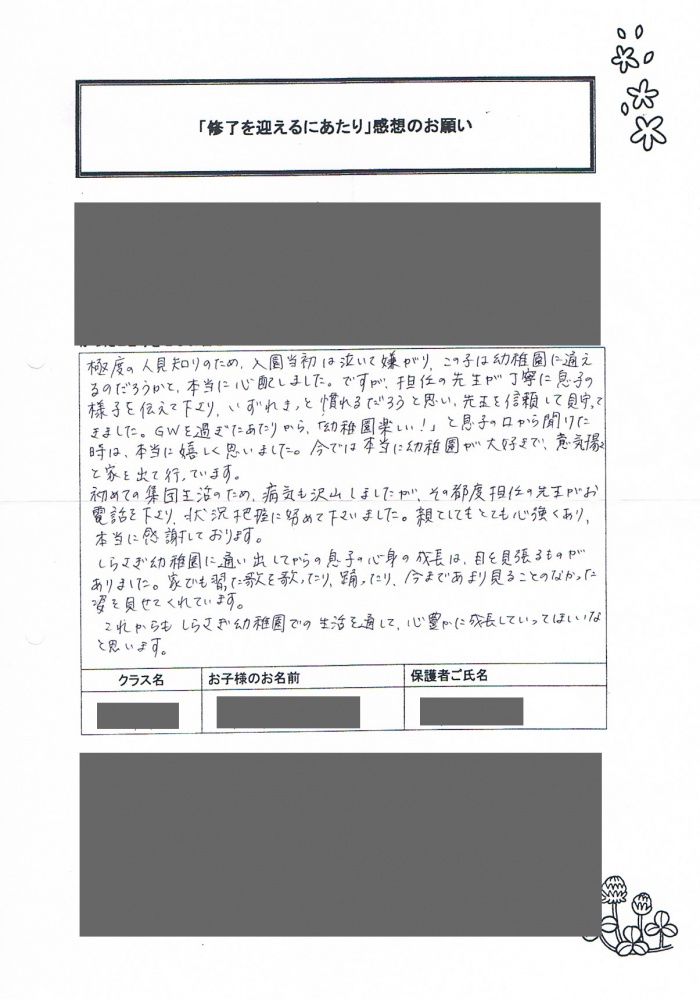 「修了を迎えるにあたり」感想のお願い
極度の人見知りのため、入園当初は泣いて嫌がり、この子は幼稚園に通え
るのだろうかと、本当に心配しました。ですが、担任の先生が丁寧に息子の
様子を伝えて下さり、いずれきっと慣れるだろうと思い、先生を信頼して見守って
きました。GWを過ぎたあたりから、「幼稚園楽しい！」と息子の口から聞けた
時は、本当に嬉しく思いました。今では本当に幼稚園が大好きで、意気揚々
と家を出て行っています。
初めての集団生活のため、病気も沢山しましたが、その都度担任の先生がお
電話を下さり、状況把握に努めて下さいました。親としてもとても心強くあり、
本当に感謝しております。
しらさぎ幼稚園に通い出してからの息子の心身の成長は、目を見張るものが
ありました。家でも習った歌を歌ったり、踊ったり、今まであまり見ることのなかった
姿を見せてくれています。
これからもしらさぎ幼稚園での生活を通して、心豊かに成長していってほしいな
と思います。
クラス名 お子様のお名前 保護者ご氏名